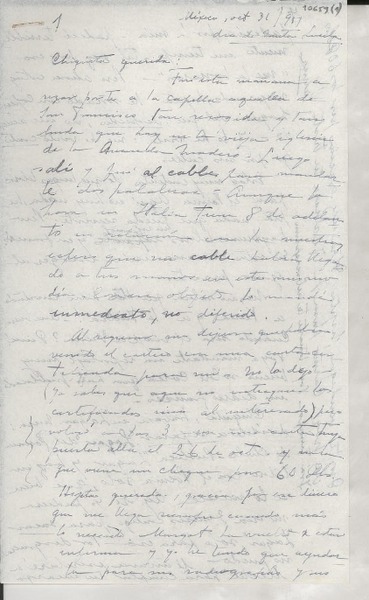 1
México, oct 31/951
10659(1)
día de Santa Lucila
Chiquita querida:
Fui esta mañana a
rezar por ti a la capilla aquella de
San Francisco tan recogida
que hay en la vieja iglesia
de la Avenida Madero. Luego
salí y fui al cable para mandar
te dos palabras. Aunque la
hora en Italia tiene 8 de adelan
to
que mi cable habrá llega
do a tus manos en este mismo
día. lo mandé
inmediato, no diferido.
Al regreso me dijeron que había
venido el cartero con una carta cer
tificada para mí. No la dejó
(ya sabes que aquí no entregan los
certificados sino al interesado) pero
carta tuya
puesta allá el 26 de oct. y en la
que viene un cheque por 60
querida, gracias por ese dinero
que me llega siempre cuando más
lo necesito. Margot ha vuelto a estar
enferma y yo he tenido que ayudar
la para sus radiografías y sus